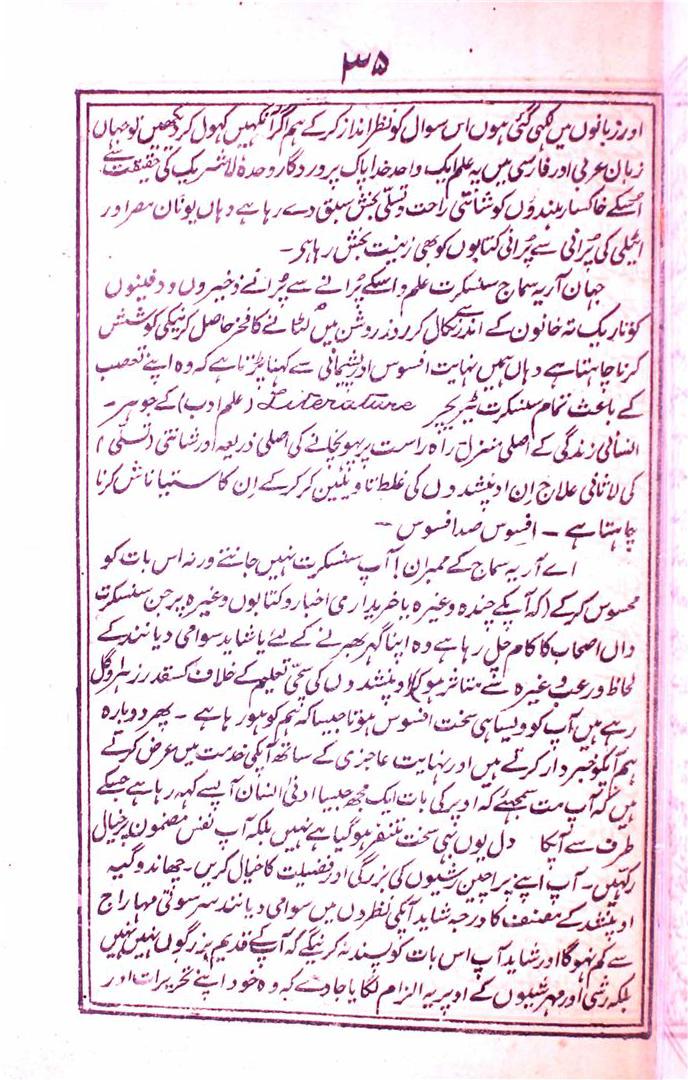 ۳۵
اور زبانوں میں لکھی گئی ہوں اس سوال کو نظر انداز کر کے ہم اگر آنکھیں کہول کر دیکھیں تو جہاں
زبان عربی اور فارسی میں یہ علم ایک واحد خدا پاک پروردگار وحدہٗ لاشریک کی حقیقت سے
اُسکے خاکسار بندوں کو شانتی راحت و تسلّی بخش سبق دے رہا ہے وہاں یونان مصر اور
اٹیلی کی پُرانی سے پُرانی کتابوں کو بھی زینت بخش رہا ہی ۔
جہان آریہ سماج سنسکرت علم و اسکے پرانے سے پُرانے ذخیروں و دفینوں
کو تاریک تہ خانون کے اندر سے نکال کر روز روشن میں لٹانے کا فخر حاصل کرنیکی کوشش
کرنا چاہتا ہے وہاں ہمیں نہایت افسوس اور پشیمانی سے کہنا پڑتا ہے کہ وہ اپنے تعصب
کے باعث تمام سنسکرت لٹریچر Literature (علم ادب) کے جوہر ۔
انسانی زندگی کے اصلی منزل راہ راست پر پہونچانے کی اصلی ذریعہ اور شانتی (تسلّی)
کی لاثانی علاج اِن اوپنشدوں کی غلط تاویلین کر کر کے اِن کا ستیاناش کرنا
چاہتا ہے ۔ افسوس صد افسوس ۔
اے آریہ سماج کے ممبران! آپ سنسکرت نہیں جانتے ورنہ اس بات کو
محسوس کر کے (کہ آپکے چندہ وغیرہ یا خریداری اخبار و کتابوں وغیرہ پر جن سنسکرت
داں اصحاب کا کام چل رہا ہے وہ اپنا گہر بھرنے کے لئے یا شاید سوامی دیانند کے
لحاظ و رعب وغیرہ سے متاثر ہو کر) اوپنشدوں کی سچّی تعلیم کے خلاف کسقدر زہر اوگل
رہے ہیں آپ کو ویسا ہی سخت افسوس ہوتا جیسا کہ ہم کو ہو رہا ہے ۔ پھر دوبارہ
ہم آپکو خبردار کرتے ہیں اور نہایت عاجزی کے ساتھ آپکی خدمت میں عرض کرتے
ہیں کہ آپ مت سمجھئے کہ اوپر کی بات ایک مجھ جیسا ادنیٰ انسان آپسے کہہ رہا ہے جسکے
طرف سے آپکا دل یوں ہی سخت متنفر ہو گیا ہے نہیں بلکہ آپ نفس مضمون پر خیال
رکہیں ۔ آپ اپنے پراچین رشیوں کی بزرگی اور فضیلت کا خیال کریں ۔ چھاندوگیہ
اوپنشد کے مصنف کا درجہ شاید آپکی نظروں میں سوامی دیانند سرسوتی مہاراج
سے کم نہوگا اور شاید آپ اس بات کو پسند نہ کرینگے کہ آپکے قدیم بزرگوں نہیں نہیں
بلکہ رشی اور مہرشیوں کے اوپر یہ الزام لگایا جاوے کہ وہ خود اپنے تحریرات اور